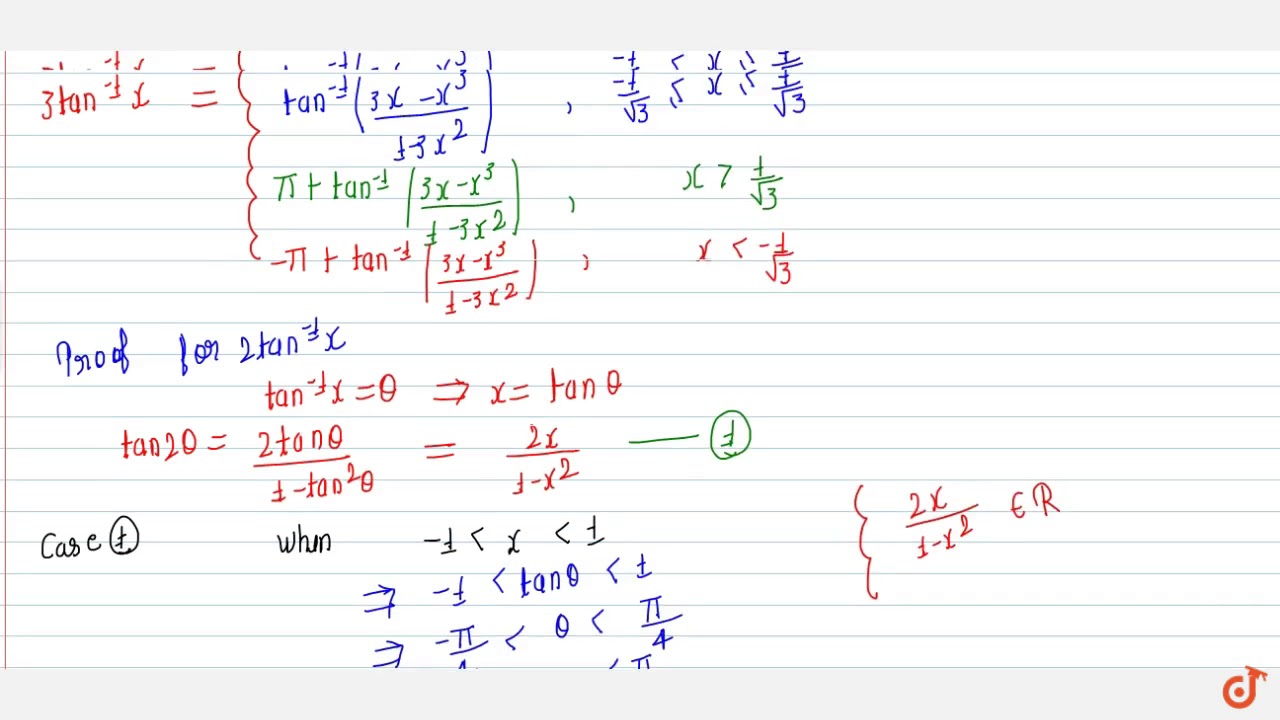 3tan⁻¹x = { tan⁻¹((3x - x³)/(1-3x²)) , -1/√3 < x < 1/√3
π + tan⁻¹((3x - x³)/(1-3x²)) , x > 1/√3
-π + tan⁻¹((3x - x³)/(1-3x²)) , x < -1/√3
Proof for 2tan⁻¹x
tan⁻¹x = θ ⇒ x = tanθ
tan2θ = 2tanθ/(1-tan²θ) = 2x/(1-x²) — ①
Case ① when -1 < x < 1 { 2x/(1-x²) ∈ R
⇒ -1 < tanθ < 1
⇒ -π/4 < θ < π/4